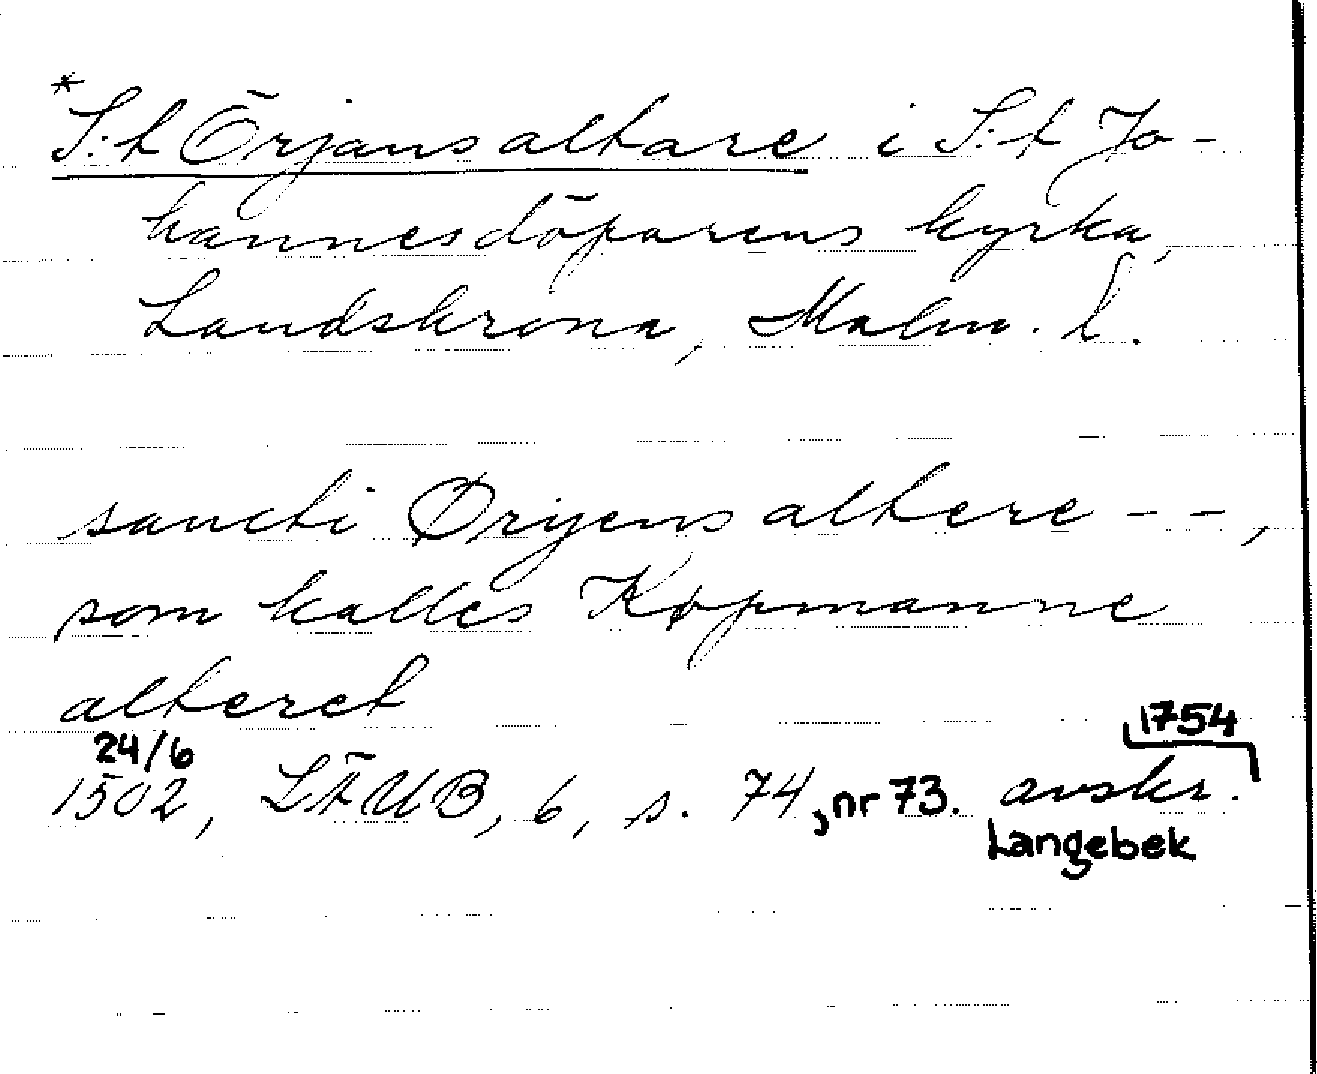 *S:t Örjans altare i S:t Jo-
hannesdöparens kyrka,
Landskrona, Malm. l.
sancti Ørjens altere - - ,
som kalles Køpmanne
alteret
24/6 1754
1502, LÄUB, 6, s. 74, nr 73. avskr.
Langebek